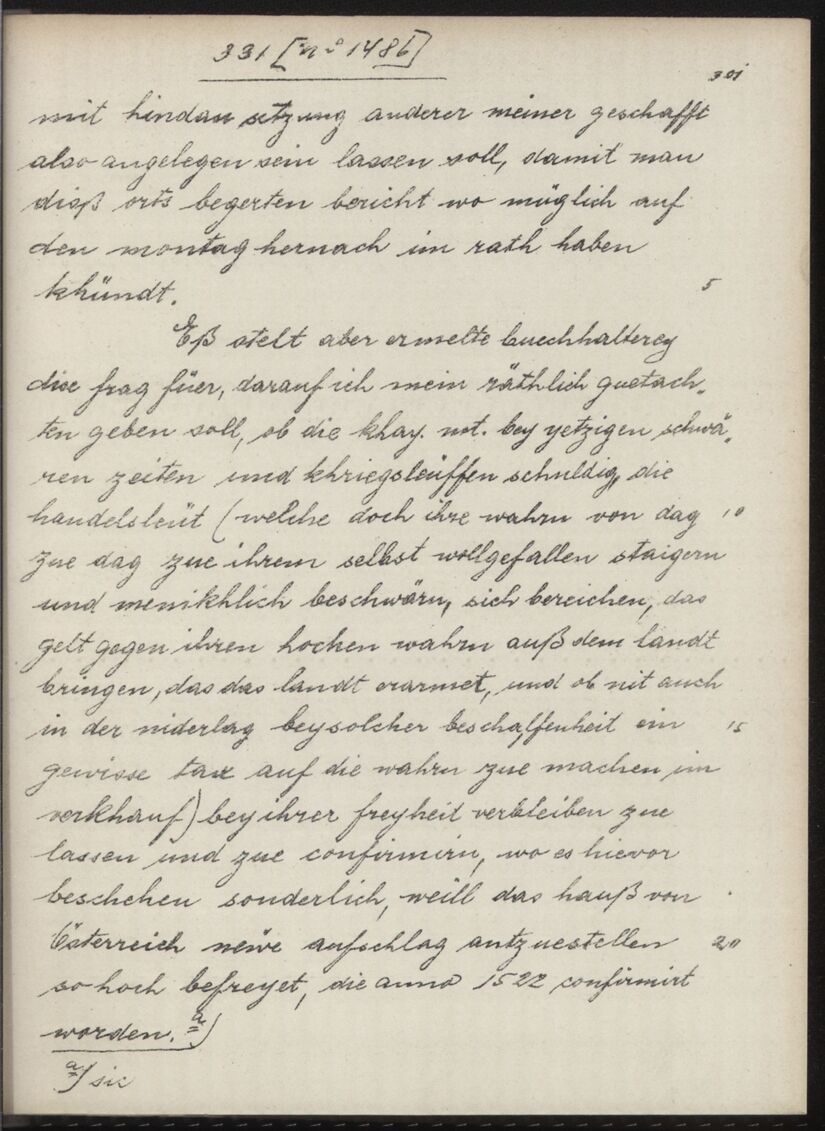 331 [no 1486]
301
mit hindansetzung anderer meiner geschafft
also angelegen sein lassen soll, damit man
diß orts begerten bericht wo müglich auf
den montag hernach im rath haben
khündt. 5
Eß stelt aber ermelte buechhalterey
dise frag füer, darauf ich mein räthlich guetach„
ten geben soll, ob die khay. mt. bey yetzigen schwä„
ren zeiten und khriegsleüffen schuldig, die
handelsleüt (welche doch ihre wahrn von dag 10
zue dag zue ihrem selbst wollgefallen staigern
und menikhlich beschwärn, sich bereichen, das
gelt gegen ihren hochen wahrn auß dem landt
bringen, das das landt erarmet, und ob nit auch
in der niderlag bey solcher beschaffenheit ein 15
gewisse tax auf die wahrn zue machen im
verkhauf) bey ihrer freyheit verbleiben zue
lassen und zue confirmirn, wo es hievor
beschehen sonderlich, weill das hauß von
Österreich newe aufschlag antzuestellen 20
so hoch befreyet, die anno 1522 confirmirt
worden. a)
a) sic